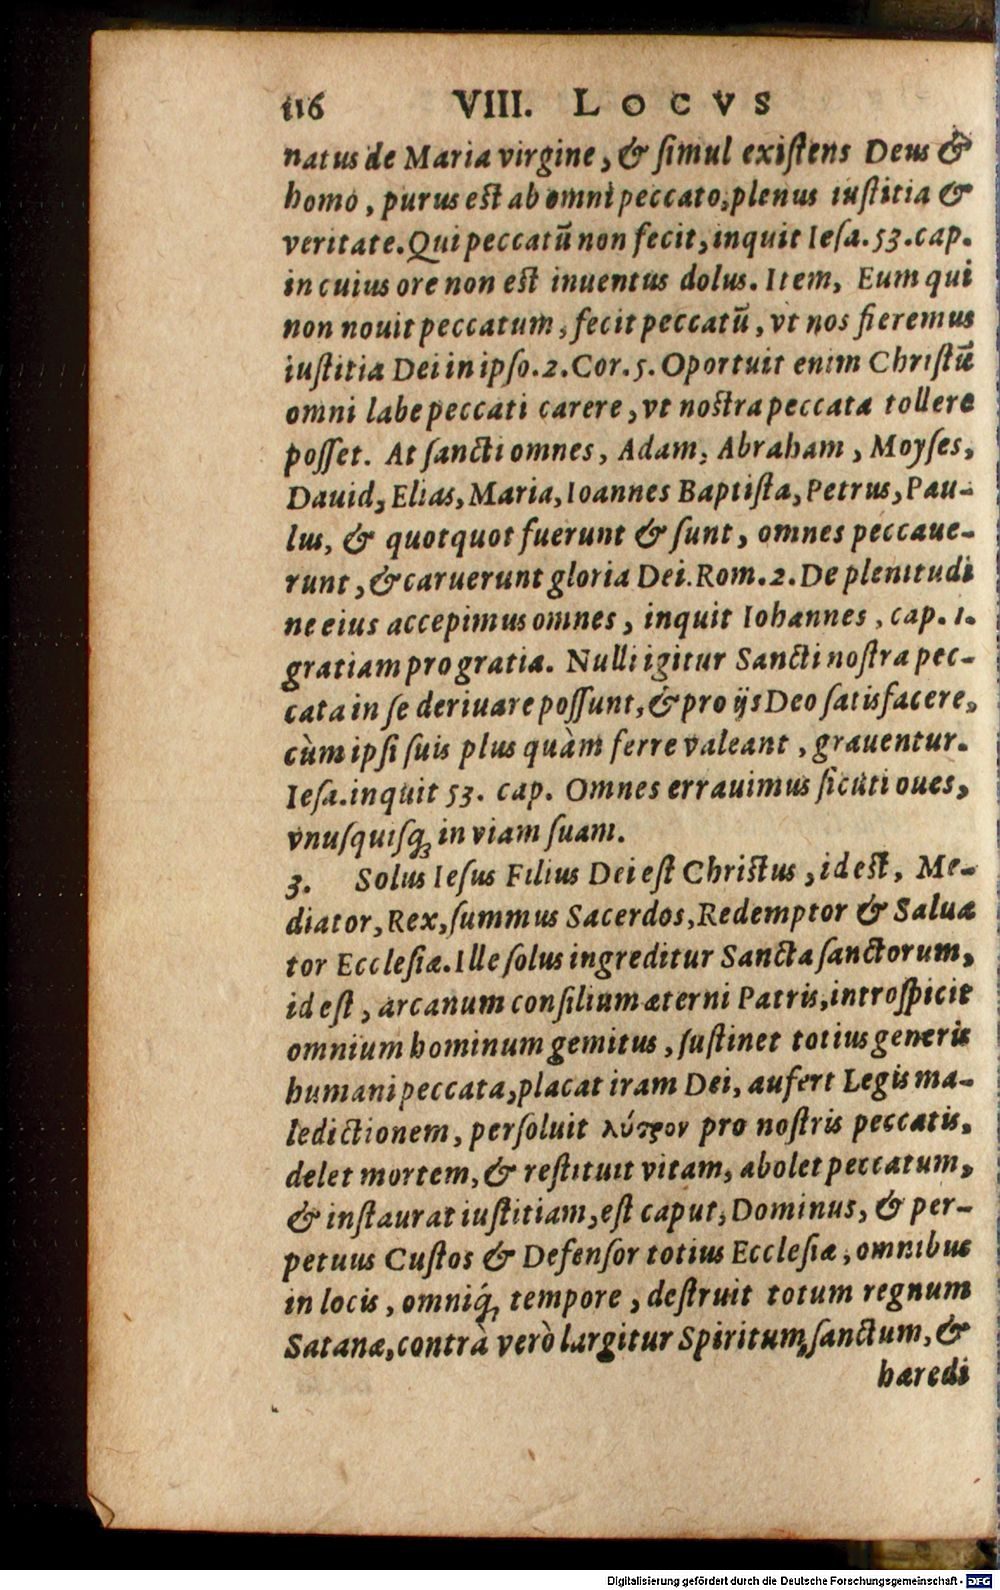 116 VIII. LOCVS
natus de Maria virgine, & ſimul exiſtens Deus &
homo, purus eſt ab omni peccato, plenus iuſtitia &
veritate. Qui peccatū non fecit, inquit Ieſa. 53. cap.
in cuius ore non eſt inuentus dolus. Item, Eum qui
non nouit peccatum, fecit peccatū, vt nos fieremus
iuſtitia Dei in ipſo. 2. Cor. 5. Oportuit enim Chriſtū
omni labe peccati carere, vt noſtra peccata tollere
poſſet. At ſancti omnes, Adam, Abraham, Moyſes,
Dauid, Elias, Maria, Ioannes Baptiſta, Petrus, Pau-
lus, & quotquot fuerunt & ſunt, omnes peccaue-
runt, & caruerunt gloria Dei. Rom. 2. De plenitudi
ne eius accepimus omnes, inquit Iohannes, cap. 1.
gratiam pro gratia. Nulli igitur Sancti noſtra pec-
cata in ſe deriuare poſſunt, & pro ijs Deo ſatisfacere,
cùm ipſi ſuis plus quàm ferre valeant, grauentur.
Ieſa. inquit 53. cap. Omnes errauimus ſicuti oues,
vnuſquiſq́ꝫ in viam ſuam.
3. Solus Ieſus Filius Dei eſt Chriſtus, id eſt, Me-
diator, Rex, ſummus Sacerdos, Redemptor & Salua
tor Eccleſiæ. Ille ſolus ingreditur Sancta ſanctorum,
id eſt, arcanum conſilium æterni Patris, introſpicit
omnium hominum gemitus, ſuſtinet totius generis
humani peccata, placat iram Dei, aufert Legis ma-
ledictionem, perſoluit λύτρον pro noſtris peccatis,
delet mortem, & reſtituit vitam, abolet peccatum,
& inſtaurat iuſtitiam, eſt caput, Dominus, & per-
petuus Cuſtos & Defenſor totius Eccleſiæ, omnibus
in locis, omniq́ꝫ tempore, deſtruit totum regnum
Satanæ, contrà verò largitur Spiritum ſanctum, &
hæredi
Digitalisierung gefördert durch die Deutsche Forschungsgemeinschaft - DFG